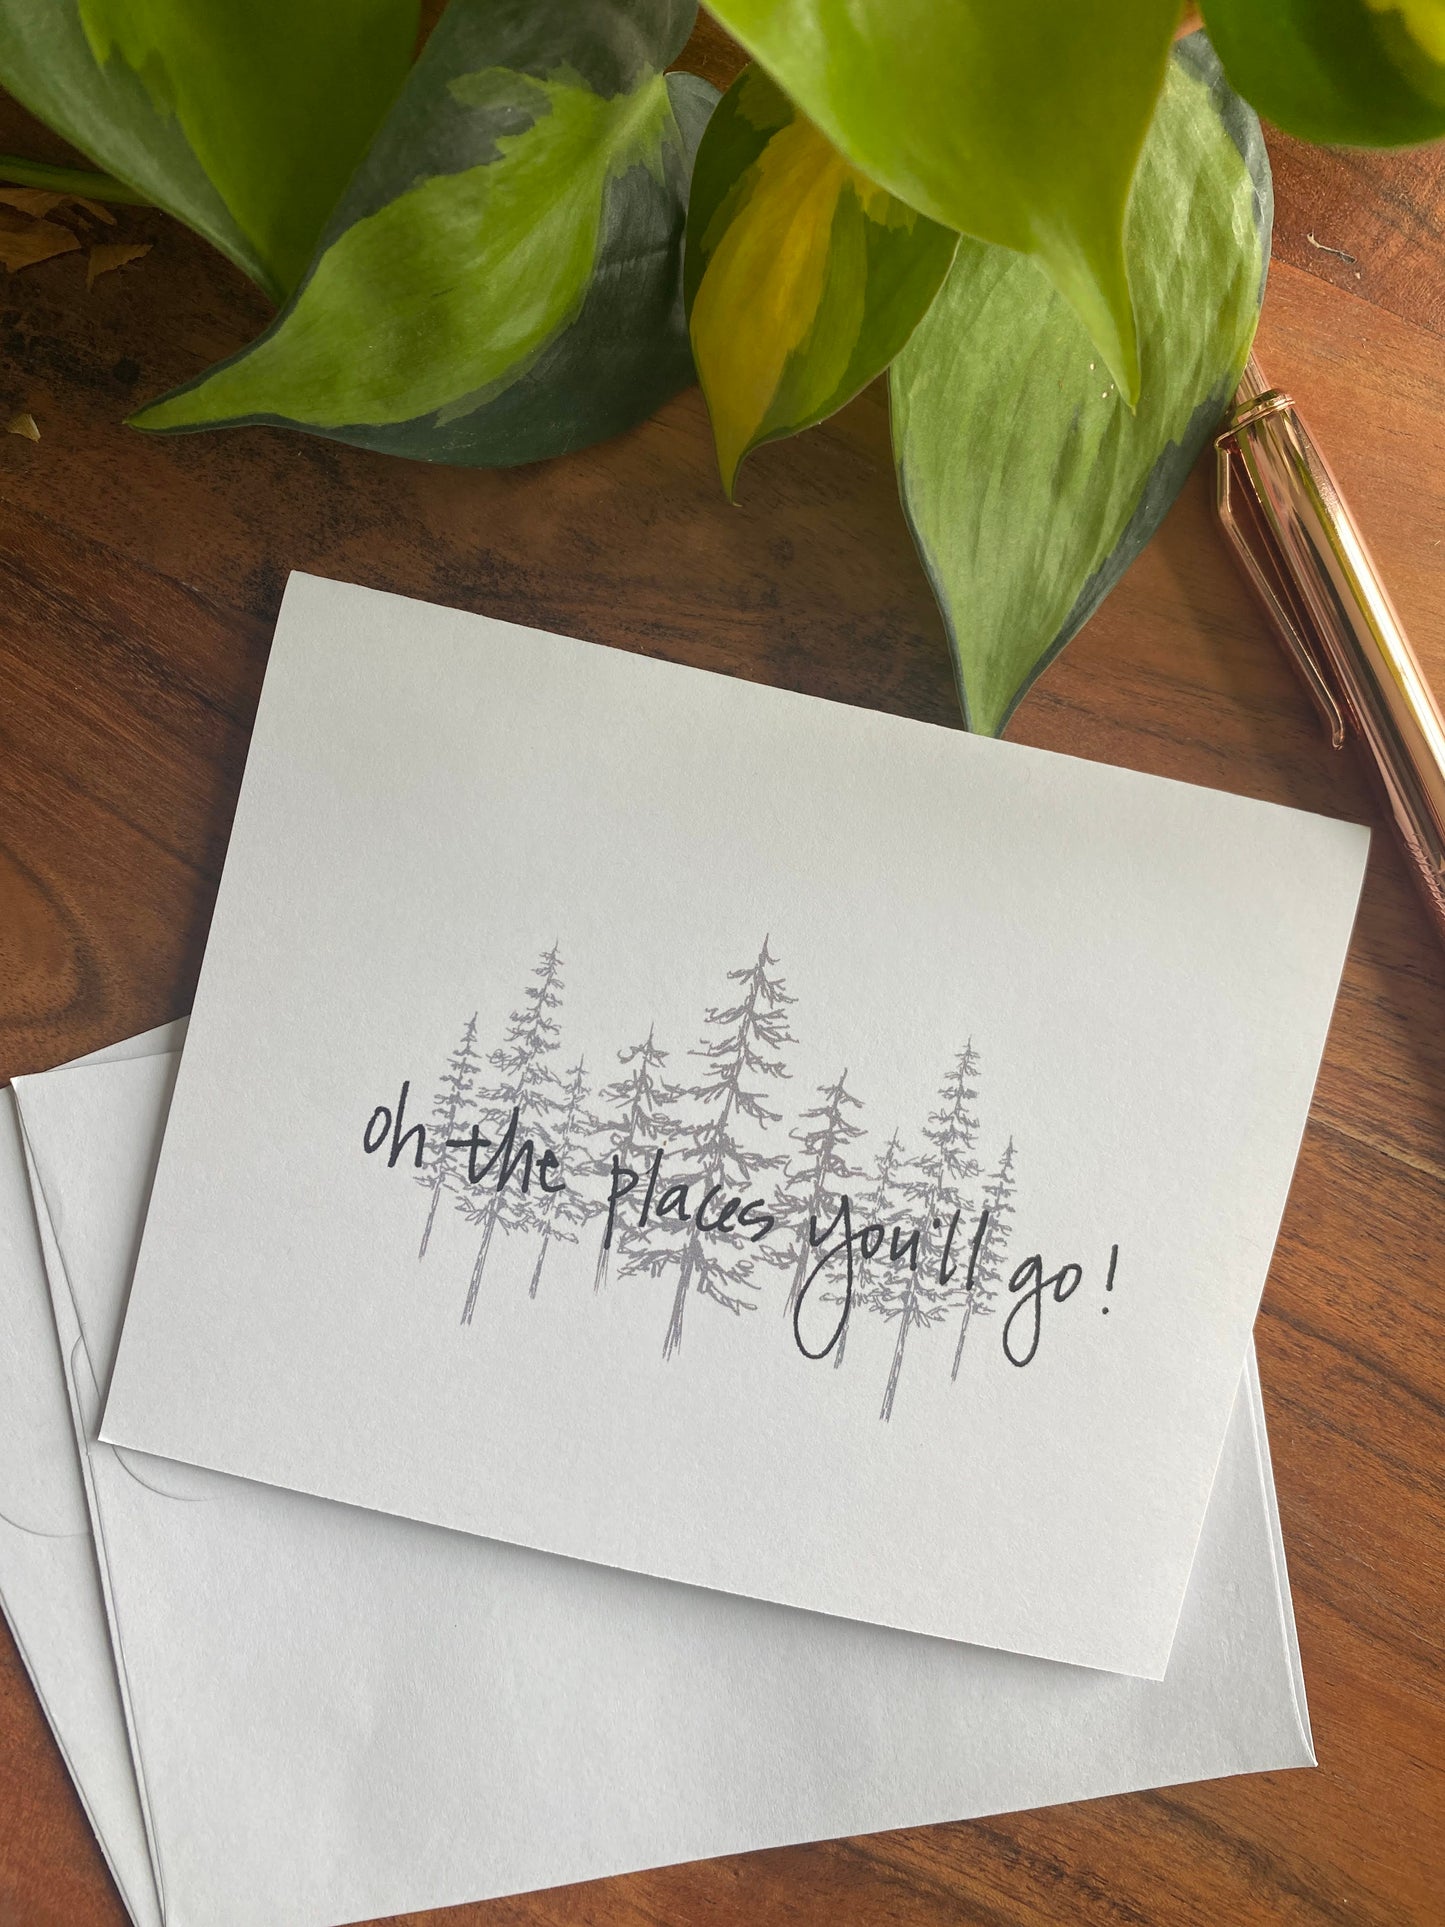 oh the places you'll go!